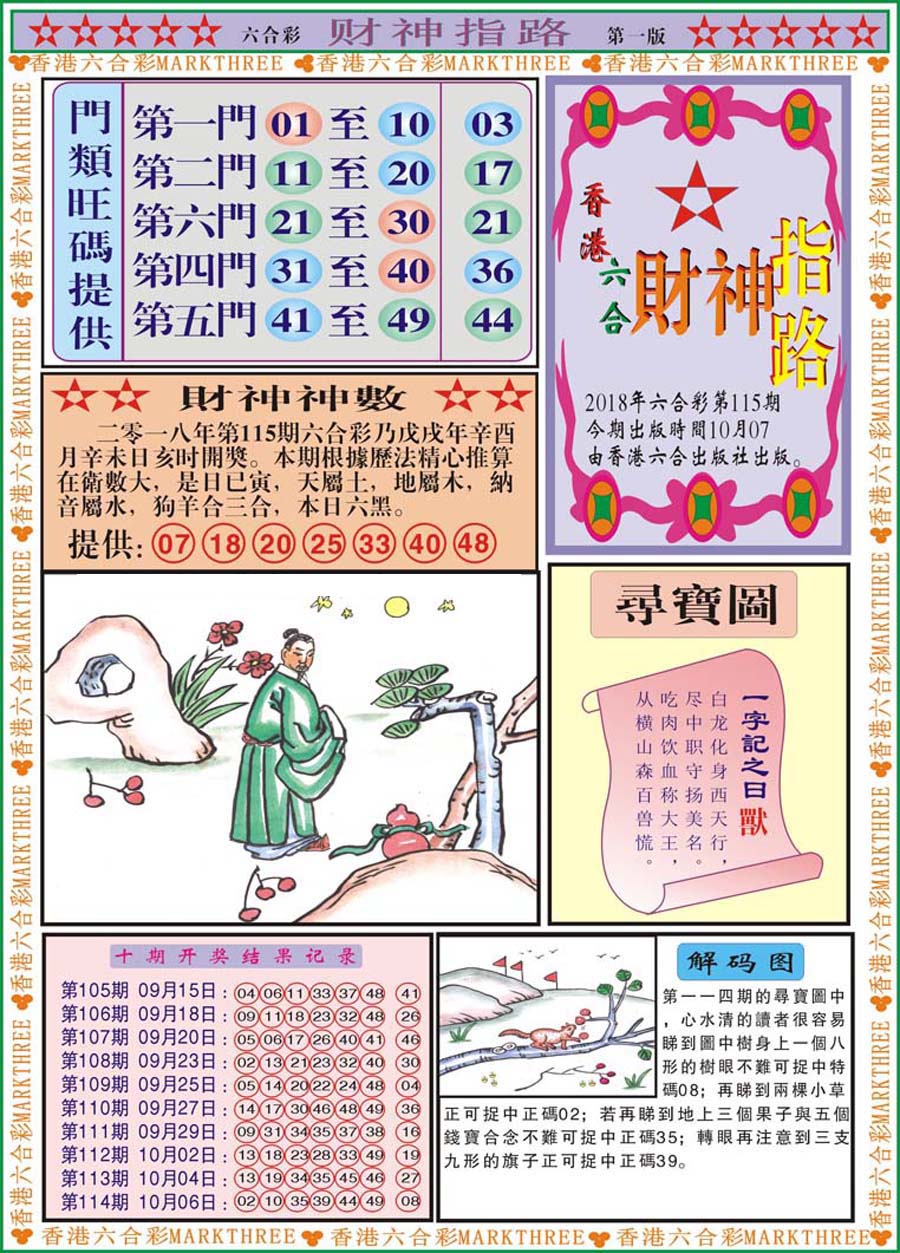 六合彩 财神指路 第一版
香港六合彩MARKTHREE 香港六合彩MARKTHREE 香港六合彩MARKTHREE
門類旺碼提供
第一門 01 至 10 03
第二門 11 至 20 17
第六門 21 至 30 21
第四門 31 至 40 36
第五門 41 至 49 44
香港六合
財神指路
2018年六合彩第115期
今期出版時間10月07
由香港六合出版社出版。
財神神數
二零一八年第115期六合彩乃戊戌年辛酉
月辛未日亥时開獎。本期根據歷法精心推算
在衛數大，是日已寅，天屬土，地屬木，納
音屬水，狗羊合三合，本日六黑。
提供: 07 18 20 25 33 40 48
尋寶圖
一字記之曰 獸
白龙化身西天行，
尽中职守扬美名。
吃肉饮血称大王，
从横山森百兽慌。
十期开奖结果记录
第105期 09月15日: 04 06 11 33 37 48 41
第106期 09月18日: 09 11 18 23 32 48 26
第107期 09月20日: 05 06 17 26 40 41 46
第108期 09月23日: 02 13 21 23 32 40 30
第109期 09月25日: 05 14 20 22 24 48 04
第110期 09月27日: 14 17 30 46 48 49 36
第111期 09月29日: 09 31 34 35 37 38 16
第112期 10月02日: 13 18 23 28 33 49 19
第113期 10月04日: 13 19 34 35 45 46 27
第114期 10月06日: 02 10 35 39 44 49 08
解码图
第一一四期的尋寶圖中
，心水清的讀者很容易
睇到圖中樹身上一個八
形的樹眼不難可捉中特
碼08；再睇到兩棵小草
正可捉中正碼02；若再睇到地上三個果子與五個
錢寶合念不難可捉中正碼35；轉眼再注意到三支
九形的旗子正可捉中正碼39。
香港六合彩MARKTHREE 香港六合彩MARKTHREE 香港六合彩MARKTHREE